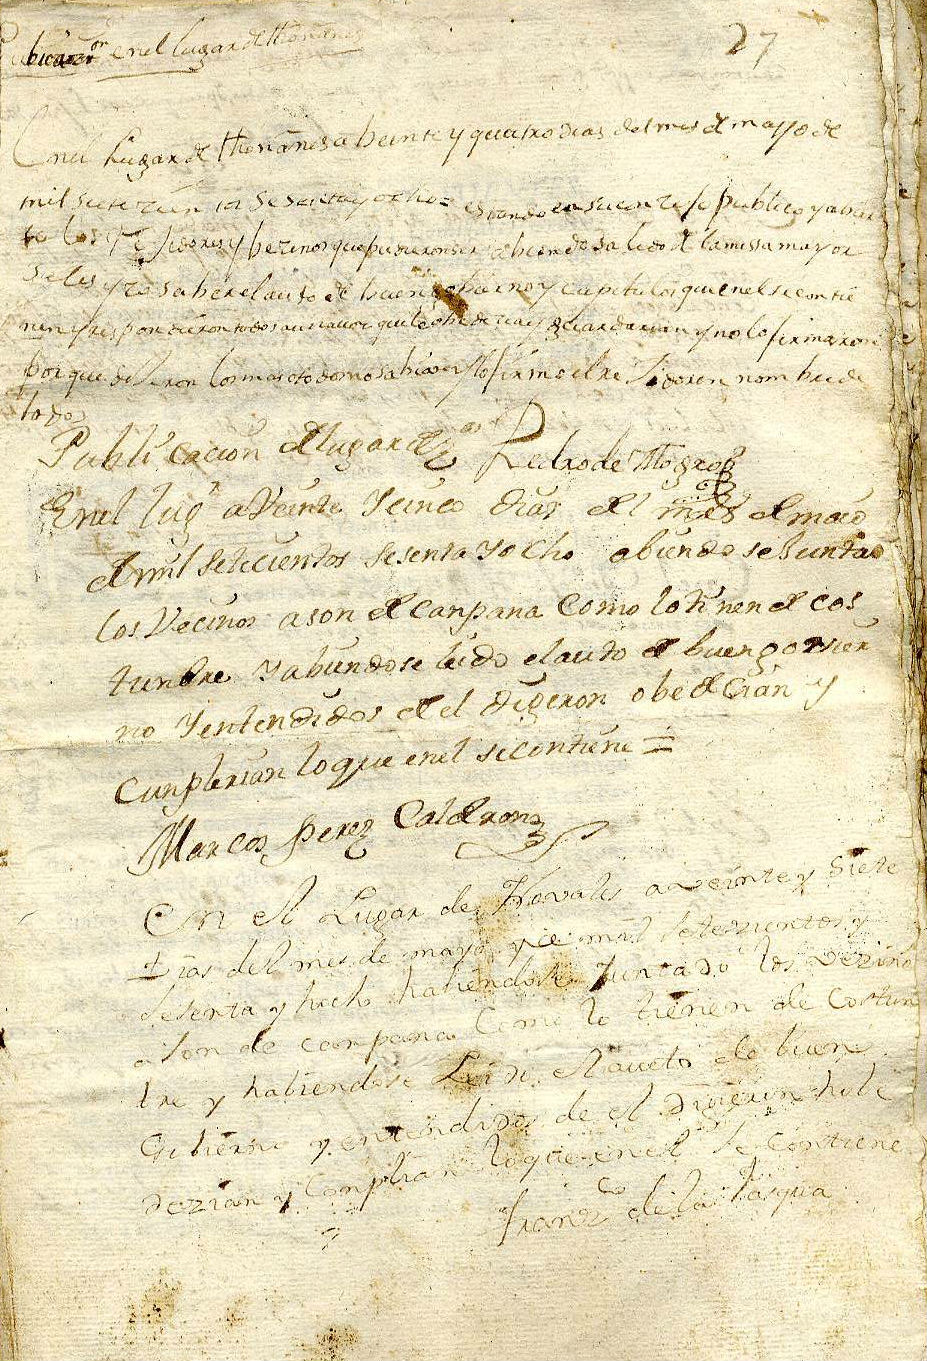 en el lugar de
27
En el Lugar de a Veinte y quatro dias del mes de mayo de
mil sesenta y ocho = estando en su conzejo publico y
los Rejidores y bezinos que pudieron ser abiendo salido de la missa mayor
se les yzo saber el auto de buen gobierno y capitulos que en el se contie
nen y respondieron todos que le obedezian guardarian y no lo firmaron
porque dijeron los mas no saber y lo firmo el rejidor en nombre de
todos
Publicacion del lugar de
Pedro de Mogro
En el lugr a Veinte y cinco dias del mes de maio
de mil setecientos sesenta y ocho abiendose Juntado
los Vecinos a son de canpana Como lo tinen de cos
tunbre y abiendose leido el auto de buen govier
no y entendidos de el digeron obedecian y
cunplerian lo que en el se contiene =
Marcos Perez Calderon
En el Lugar de Novales a veinte y Siete
Dias del mes de mayo y de mil setezientos y
sesenta y hocho habiendose Juntado los vezino
a son de canpana Como lo tienen de Costun
bre y habiendose Leido el aueto de buen
Gobierno y entendidos de el Digieron hobe
dezian y Conplian lo que en el Se Contiene
Franco de la Tasqua